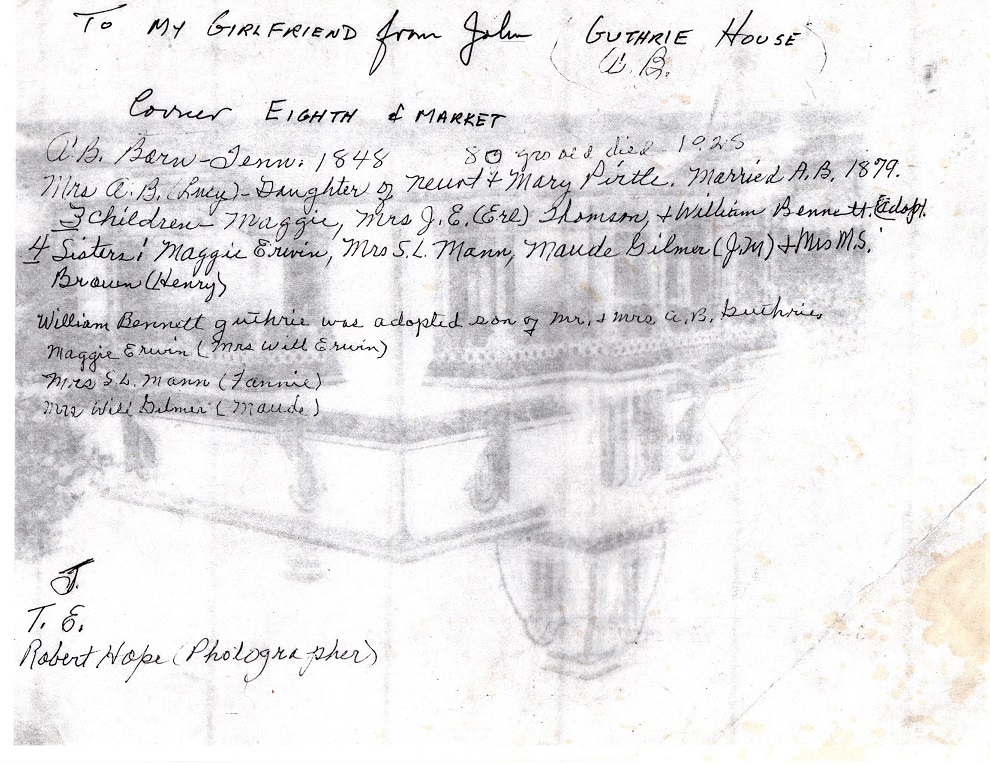 To MY GIRLFRIEND from John (GUTHRIE HOUSE)
A. B.
Corner EIGHTH & MARKET
A.B. Born - Tenn. 1848 80 yrs old died 1928
Mrs A.B. (Lucy) - Daughter of & Mary Pirtle. Married A.B. 1879.
3 Children - Maggie, Mrs J.E. (Ere) Thomson, + William Bennett. (adopt.
4 Sisters: Maggie Erwin, Mrs S.L. Mann, Maude Gilmer (J.M) + Mrs M.S.
Brown (Henry)
William Bennett guthrie was adopted son of Mr. + Mrs A.B. Guthrie.
Maggie Erwin (Mrs Will Erwin)
Mrs S.L. Mann (Fannie)
Mrs Will Gilmer (Maude)
J.
T. E.
Robert Hope (Photographer)